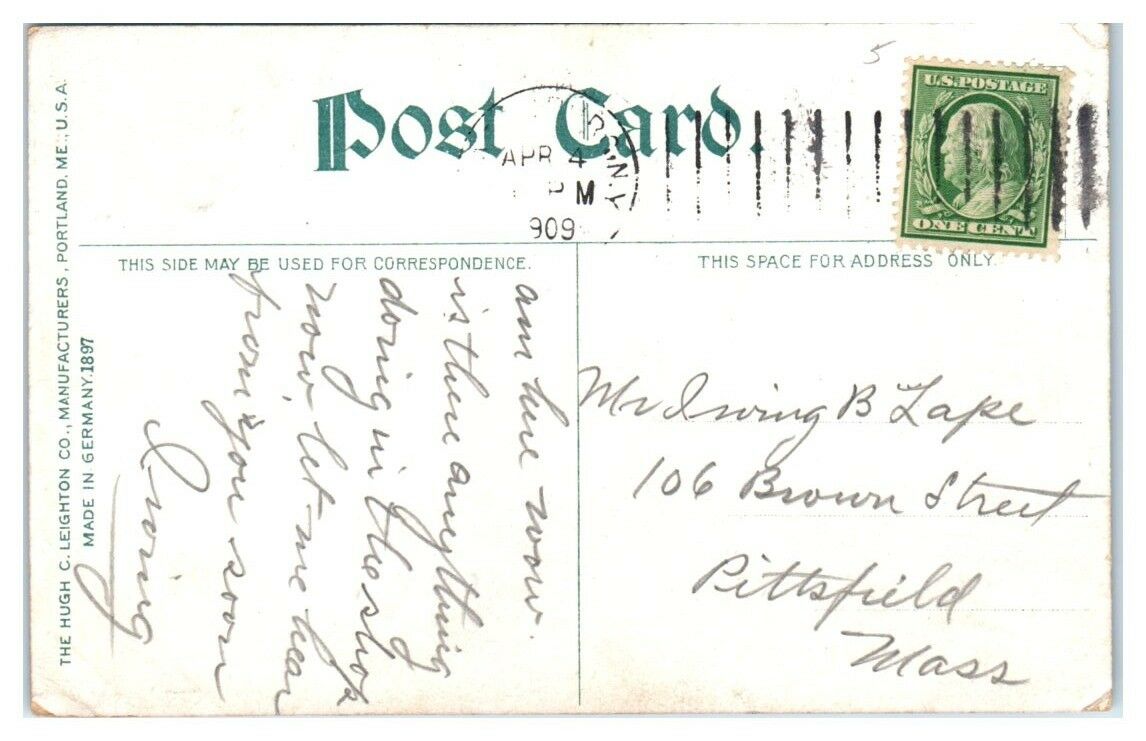 Post Card.
U.S. POSTAGE
ONE CENT
5
APR 4
PM
909
N.Y.
THIS SIDE MAY BE USED FOR CORRESPONDENCE.
THIS SPACE FOR ADDRESS ONLY.
THE HUGH C. LEIGHTON CO., MANUFACTURERS, PORTLAND, ME., U.S.A.
MADE IN GERMANY. 1897
am here now.
is there anything
doing in the shop
now, let me hear
from you soon
Irving
Mr Irving B Lape
106 Brown Street
Pittsfield
Mass